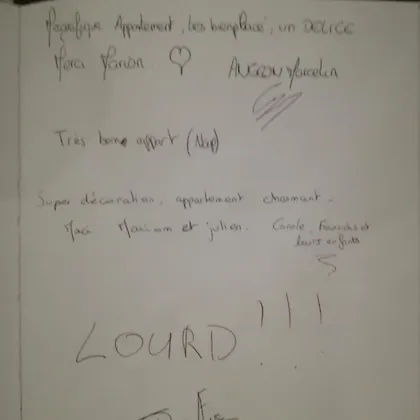 Magnifique Appartement, très bien placé, un DELICE
Merci Marion ♡ ANGRON Marcelin
Très bonne appart (Nap)
Super décoration, appartement charmant.
Merci Mariam et julien. Carole, Francois et
leurs enfants
LOURD !!!